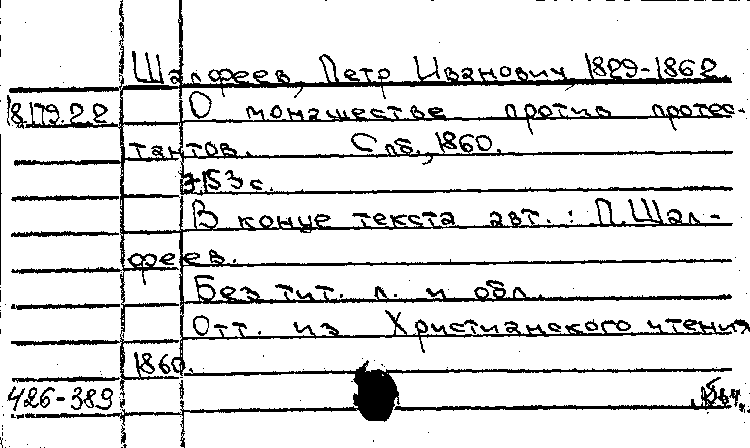 Шалфеев, Петр Иванович, 1829-1862.
18.179.2.2 О монашестве против протес-
тантов. Спб., 1860.
153 с.
В конце текста авт.: П. Шал-
феев.
Без тит. л. и обл.
Отт. из Христианского чтения
1860.
426-389